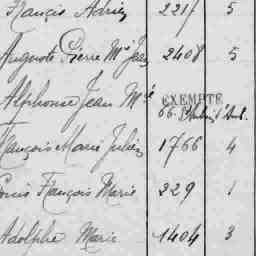 François Adrien 2217 5
Auguste Pierre Mie Jean 2408 5
Alphonse Jean Mie EXEMPTE
66. St Aubin
François Marie Julien 1766 4
Louis François Marie 229 1
Adolphe Marie 1404 3